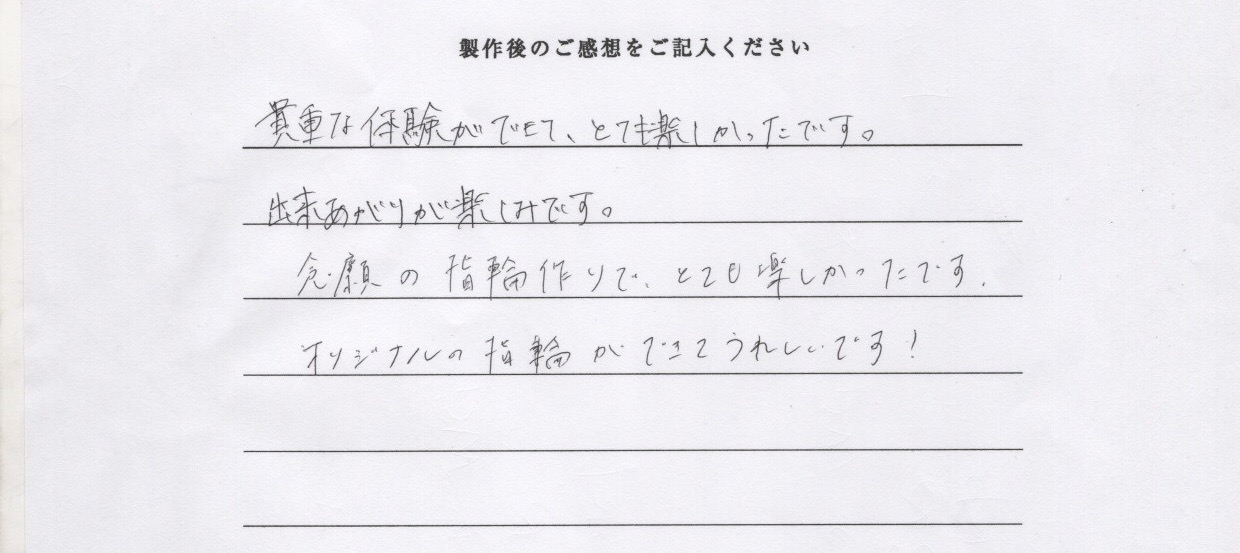 製作後のご感想をご記入ください
貴重な体験ができて、とても楽しかったです。
出来あがりが楽しみです。
念願の指輪作りで、とても楽しかったです.
オリジナルの指輪ができてうれしいです!